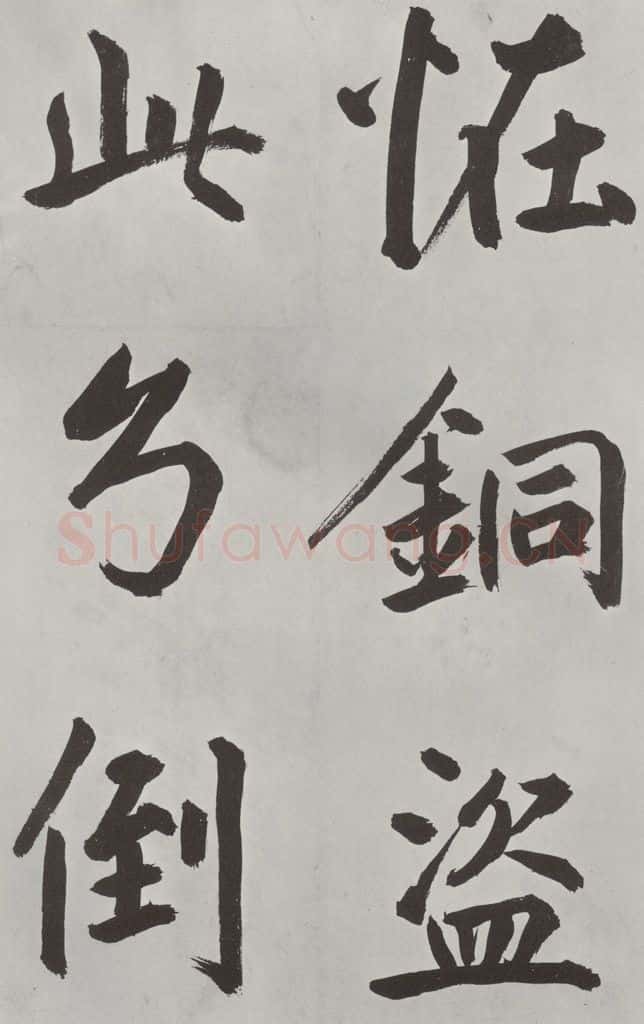 恠銅盜
此倒
Shufawang.CN